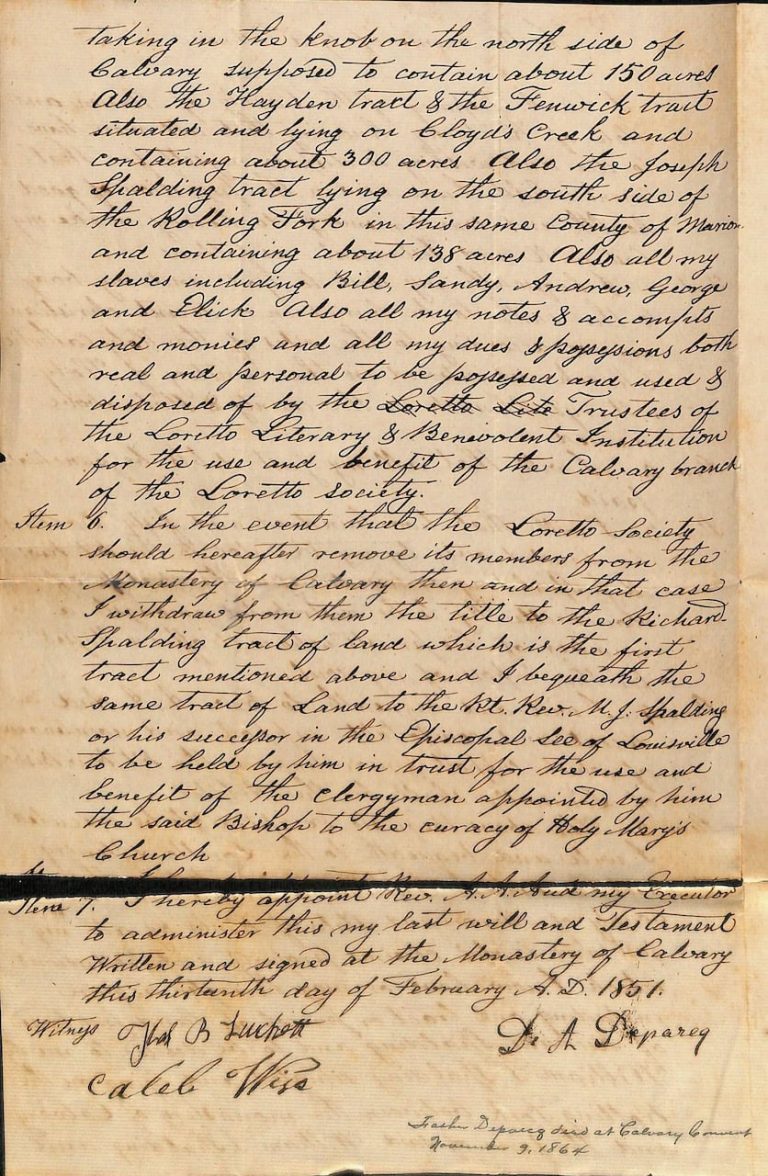 taking in the knob on the north side of
Calvary supposed to contain about 150 acres
Also the Hayden tract & the Fenwick tract
situated and lying on Cloyd's Creek and
containing about 300 acres Also the Joseph
Spalding tract lying on the south side of
the Rolling Fork in this same County of Marion
and containing about 138 acres Also all my
slaves including Bill, Sandy, Andrew, George
and Elick Also all my notes & accompts
and monies and all my dues & possessions both
real and personal to be possessed and used &
disposed of by the Loretto Lite Trustees of
the Loretto Literary & Benevolent Institution
for the use and benefit of the Calvary branch
of the Loretto society.
Item 6. In the event that the Loretto Society
should hereafter remove its members from the
Monastery of Calvary then and in that case
I withdraw from them the title to the Richard
Spalding tract of land which is the first
tract mentioned above and I bequeath the
same tract of Land to the Rt. Rev. M. J. Spalding
or his successor in the Episcopal See of Louisville
to be held by him in trust for the use and
benefit of the Clergyman appointed by him
the said Bishop to the curacy of Holy Mary's
Church
Item 7. I hereby appoint Rev. A. A. Aud my Executor
to administer this my last will and Testament
Written and signed at the Monastery of Calvary
this thirteenth day of February A. D. 1851.
Witness B Luckett D. A Deparcq
Caleb Wise
Father Deparcq died at Calvary Convent
November 9, 1864